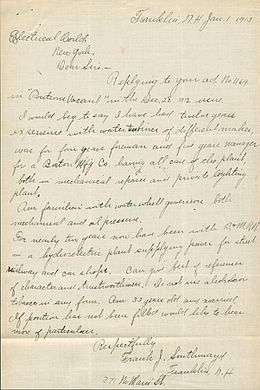 Franklin, N.H. Jan. 1 1913
Electrical World
New York,
Dear Sirs—
Replying to your ad. No 1169
in "Positions Vacant" in the Dec. 28 '12 issue.
I would beg to say I have had twelve years
experience with water turbines of different makes,
was for four years foreman and five years manager
for a Boston Mfg Co having all care of the plant,
both mechanical repairs and private lighting
plant,
Am familiar with water wheel governors both
mechanical and oil pressure
For nearly two years now have been with B & M RR
— a hydroelectric plant supplying power for street
railway and car shops. Can give best of reference
of character and trustworthiness. Do not use alcohol or
tobacco in any form. Am 33 years old and married
If position has not been filled would like to know
more of particulars,
Respectfully
Frank J.
Franklin N.H
271 No Main St.